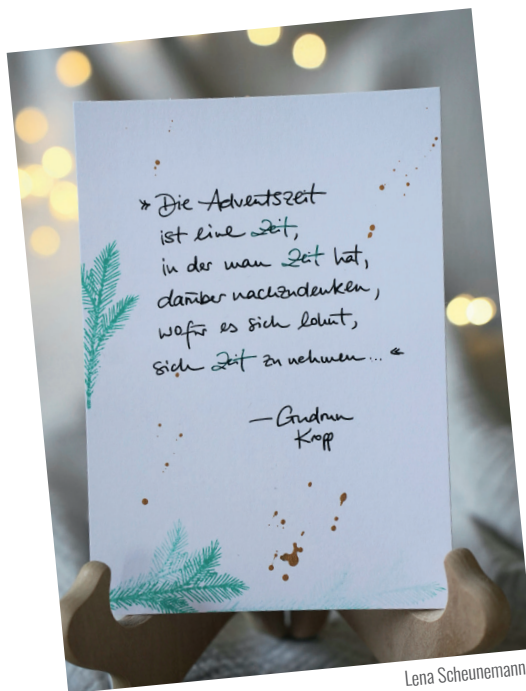 » Die Adventszeit
ist eine Zeit,
in der man Zeit hat,
darüber nachzudenken,
wofür es sich lohnt,
sich Zeit zu nehmen... «
— Gudrun
Kropp
Lena Scheunemann